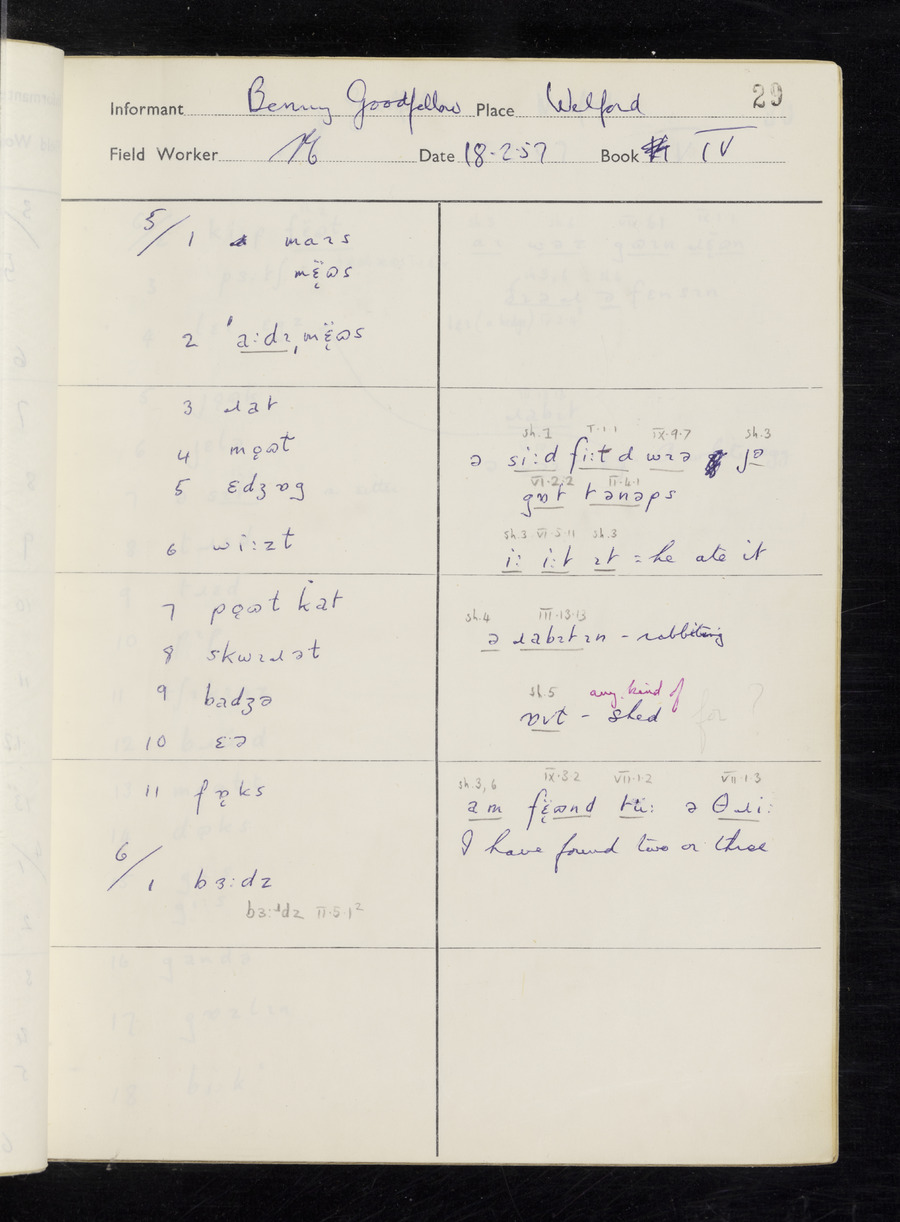 Informant Benny Goodfellow Place Welford 29
Field Worker Date 18-2-57 Book IV
5/1 maɪs
mɛ̈ωs
2 ˈa:dɪˌmɛ̈ωs
3 ɹat
4 mǫωt
5 ɛdʒɒg
6 wi:zt
7 pǫωt kat
8 skwɪɹət
9 badʒə
10 ɛə
11 fɒ̨ks
6/1 bɜ:dz
bɜ:ɹdz II·5·1²
sh.1 V·1·1 IX·9·7 sh.3
ə si:d fi:t d wɪə jə
VI·2·2 II·4·1
gɒt tənəps
sh.3 VI·5·11 sh.3
i: i:t ɪt = he ate it
sh.4 III·13·13
ə ɹabɪtɪn - rabbiting
sh.5 any kind of
ɒvt - shed for ?
sh.3, 6 IX·3·2 VII·1·2 VII·1·3
am fɛ̈ωnd tü: ə θɹi:
I have found two or three